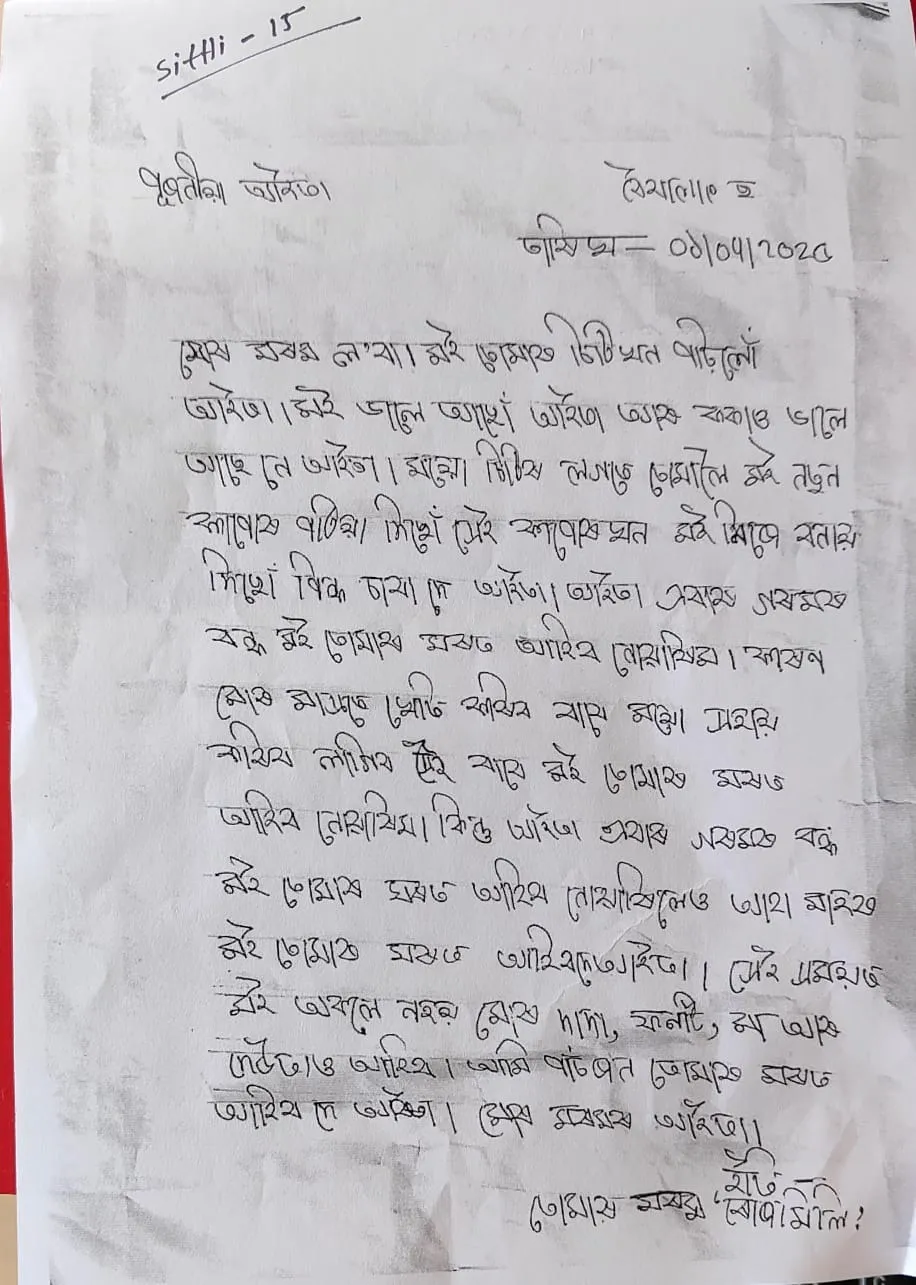 Sitthi - 15
পুৱতীয়া আইতা
তাৰিখ — 06/04/2026
মোৰ মৰম ল'বা। মই তোমাক চিঠি খন পঢ়িলোঁ
আইতা। মই ভালে আছোঁ আইতা আৰু ককাও ভালে
আছে নে আইতা। মায়ে চিঠিৰ লগতে তোমালৈ মই নতুন
কাপোৰ পঠিয়াই দিছোঁ সেই কাপোৰ খন মই নিজে বনায়
দিছোঁ পিন্ধি চাবা দে আইতা। আইতা এবাৰ গৰমৰ
বন্ধ মই তোমাৰ ঘৰত আহিব নোৱাৰিম। কাৰণ
মোৰ মাকতে খেতি কৰিব বাবে মায়ে সহায়
কৰিব লাগিব সেই বাবে মই তোমাৰ ঘৰত
আহিব নোৱাৰিম। কিন্তু আইতা এবাৰ গৰমৰ বন্ধ
মই তোমাৰ ঘৰত আহিব নোৱাৰিলেও আহা মাহত
মই তোমাৰ ঘৰত আহিব দে আইতা। সেই সময়ত
মই অকলে নহয় মোৰ দাদা, মা আৰু
দেউতাও আহিব। আমি পাঁচজন তোমাৰ ঘৰত
আহিব দে আইতা। মোৰ মৰমৰ আইতা।
ইতি —
তোমাৰ মৰম